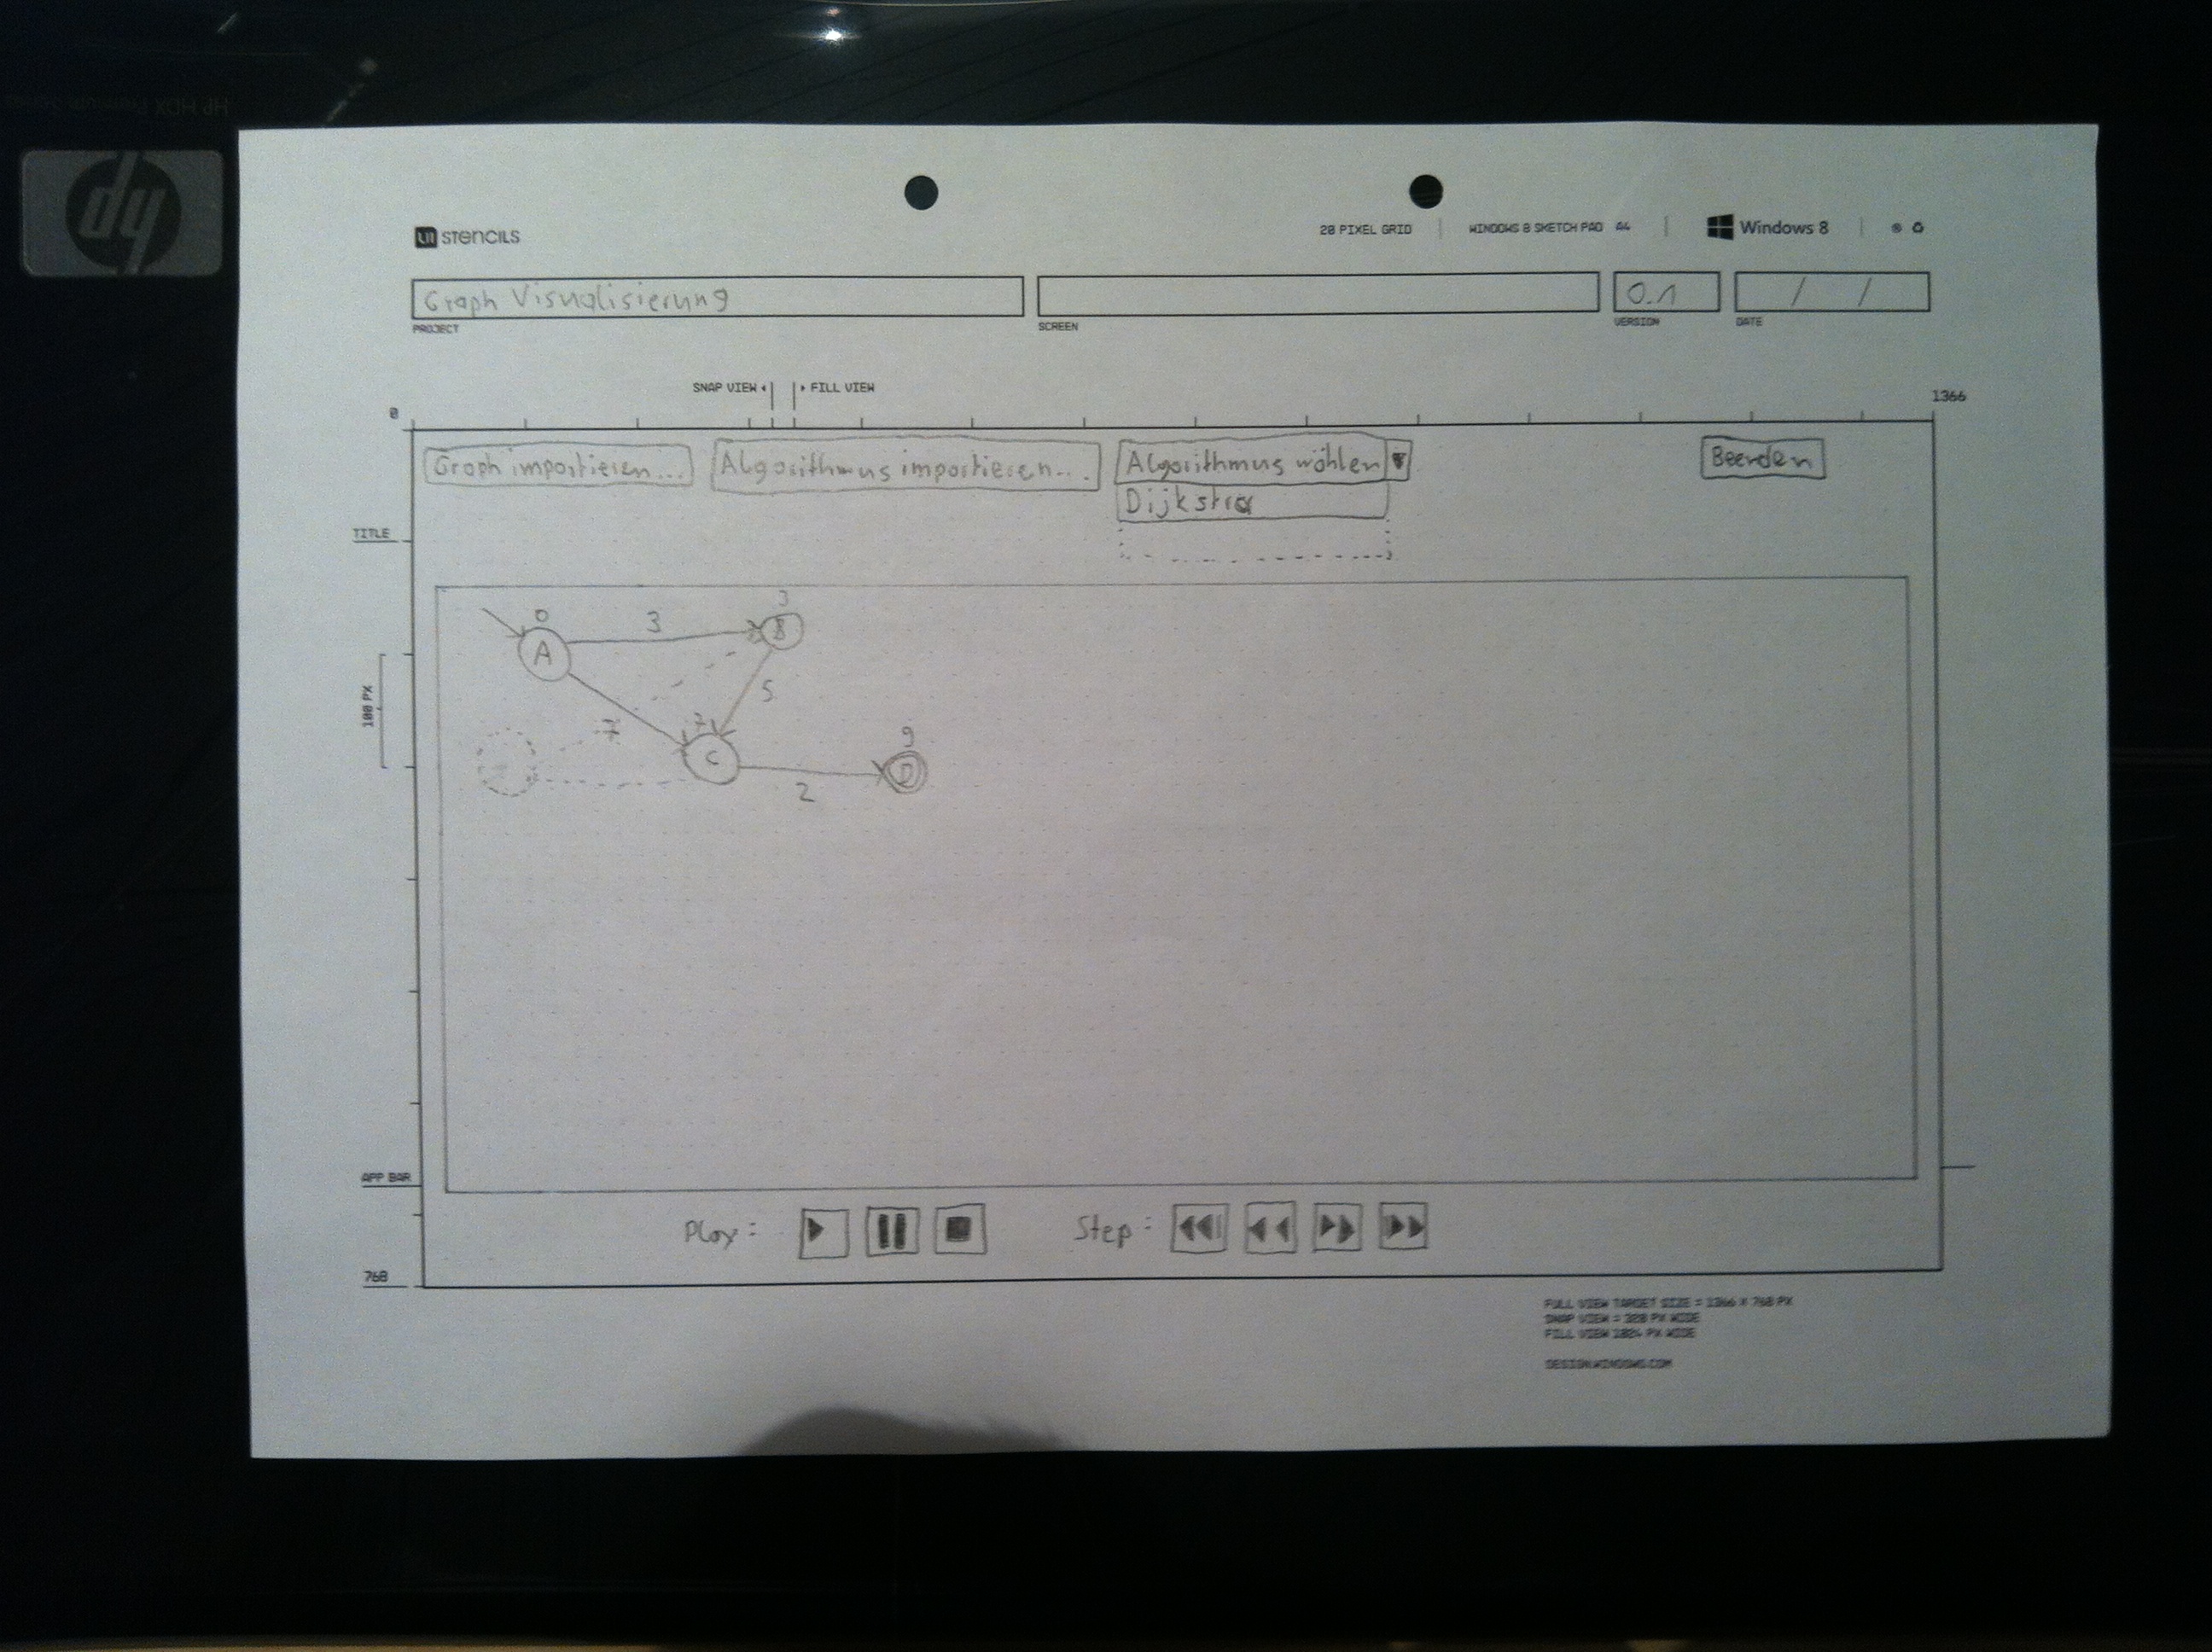 HP HDX Premium Series
hp
UI STENCILS
20 PIXEL GRID
WINDOWS 8 SKETCH PAD A4
Windows 8
Graph Visualisierung
0.1
/ /
PROJECT
SCREEN
VERSION
DATE
SNAP VIEW
FILL VIEW
0
1366
Graph importieren...
Algorithmus importieren...
Algorithmus wählen
Beenden
Dijkstra
TITLE
0
3
3
A
B
5
100 PX
7
7
C
9
D
2
APP BAR
Play:
Step:
768
FULL VIEW TARGET SIZE = 1366 X 768 PX
SNAP VIEW = 320 PX WIDE
FILL VIEW 1024 PX WIDE
DESIGN.WINDOWS.COM